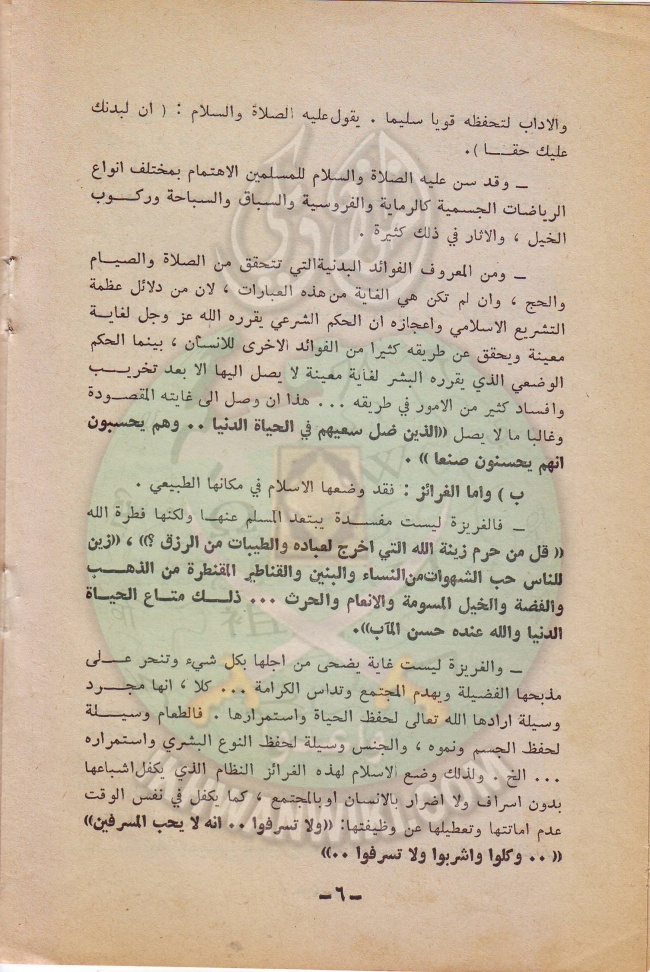 والاداب لتحفظه قويا سليما . يقول عليه الصلاة والسلام : ( ان لبدنك
عليك حقــا ).
ـ وقد سن عليه الصلاة والسلام للمسلمين الاهتمام بمختلف انواع
الرياضات الجسمية كالرماية والفروسية والسباق والسباحة وركــوب
الخيل ، والاثار في ذلك كثيرة .
ـ ومن المعروف الفوائد البدنية التي تتحقق من الصلاة والصيــام
والحج ، وان لم تكن هي الغاية من هذه العبارات ، لان من دلائل عظمة
التشريع الاسلامي واعجازه ان الحكم الشرعي يقرره الله عز وجل لغايــة
معينة ويحقق عن طريقه كثيرا من الفوائد الاخرى للانسان ، بينما الحكم
الوضعي الذي يقرره البشر لغاية معينة لا يصل اليها الا بعد تخريــب
وافساد كثير من الامور في طريقه ... هذا ان وصل الى غايته المقصودة
وغالبا ما لا يصل ((الذين ضل سعيهم في الحياة الدنيا .. وهم يحسبون
انهم يحسنون صنعا )) .
ب ) واما الغرائز : فقد وضعها الاسلام في مكانها الطبيعي .
ـ فالغريزة ليست مفسدة يبتعد المسلم عنهــا ولكنها فطرة الله
(( قل من حرم زينة الله التي اخرج لعباده والطيبات من الرزق ؟)) ، ((زين
للناس حب الشهوات من النساء والبنين والقناطير المقنطرة من الذهــب
والفضة والخيل المسومة والانعام والحرث ... ذلــك متــاع الحيــاة
الدنيا والله عنده حسن المآب)).
ـ والغريزة ليست غاية يضحى من اجلها بكل شيء وتنحر علــى
مذبحها الفضيلة ويهدم المجتمع وتداس الكرامة ... كلا ، انها مجــرد
وسيلة ارادها الله تعالى لحفظ الحياة واستمرارها . فالطعام وسيــلة
لحفظ الجسم ونموه ، والجنس وسيلة لحفظ النوع البشري واستمراره
... الخ . ولذلك وضع الاسلام لهذه الغرائز النظام الذي يكفل اشباعها
بدون اسراف ولا اضرار بالانسان او بالمجتمع ، كما يكفل في نفس الوقت
عدم اماتتها وتعطيلها عن وظيفتها: ((ولا تسرفوا .. انه لا يحب المسرفين))
(( .. وكلوا واشربوا ولا تسرفوا .. ))
ـ ٦ ـ